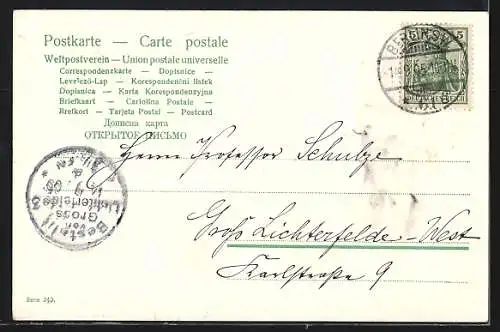 Postkarte — Carte postale
Weltpostverein — Union postale universelle
Correspondenzkarte — Dopisnice —
Levelező-Lap — Korespondenční lístek
Dopisnica — Karta Korespondencyjna
Briefkaart — Cartolina Postale —
Brefkort — Tarjeta Postal — Postcard
Дописна карта
ОТКРЫТОЕ ПИСЬМО
5
DEUTSCHES REICH
Bestellt
vom
Gross
Lichterfelde 3
Herrn Professor Schulze
Groß Lichterfelde-West
Karlstraße 9
Serie 343.